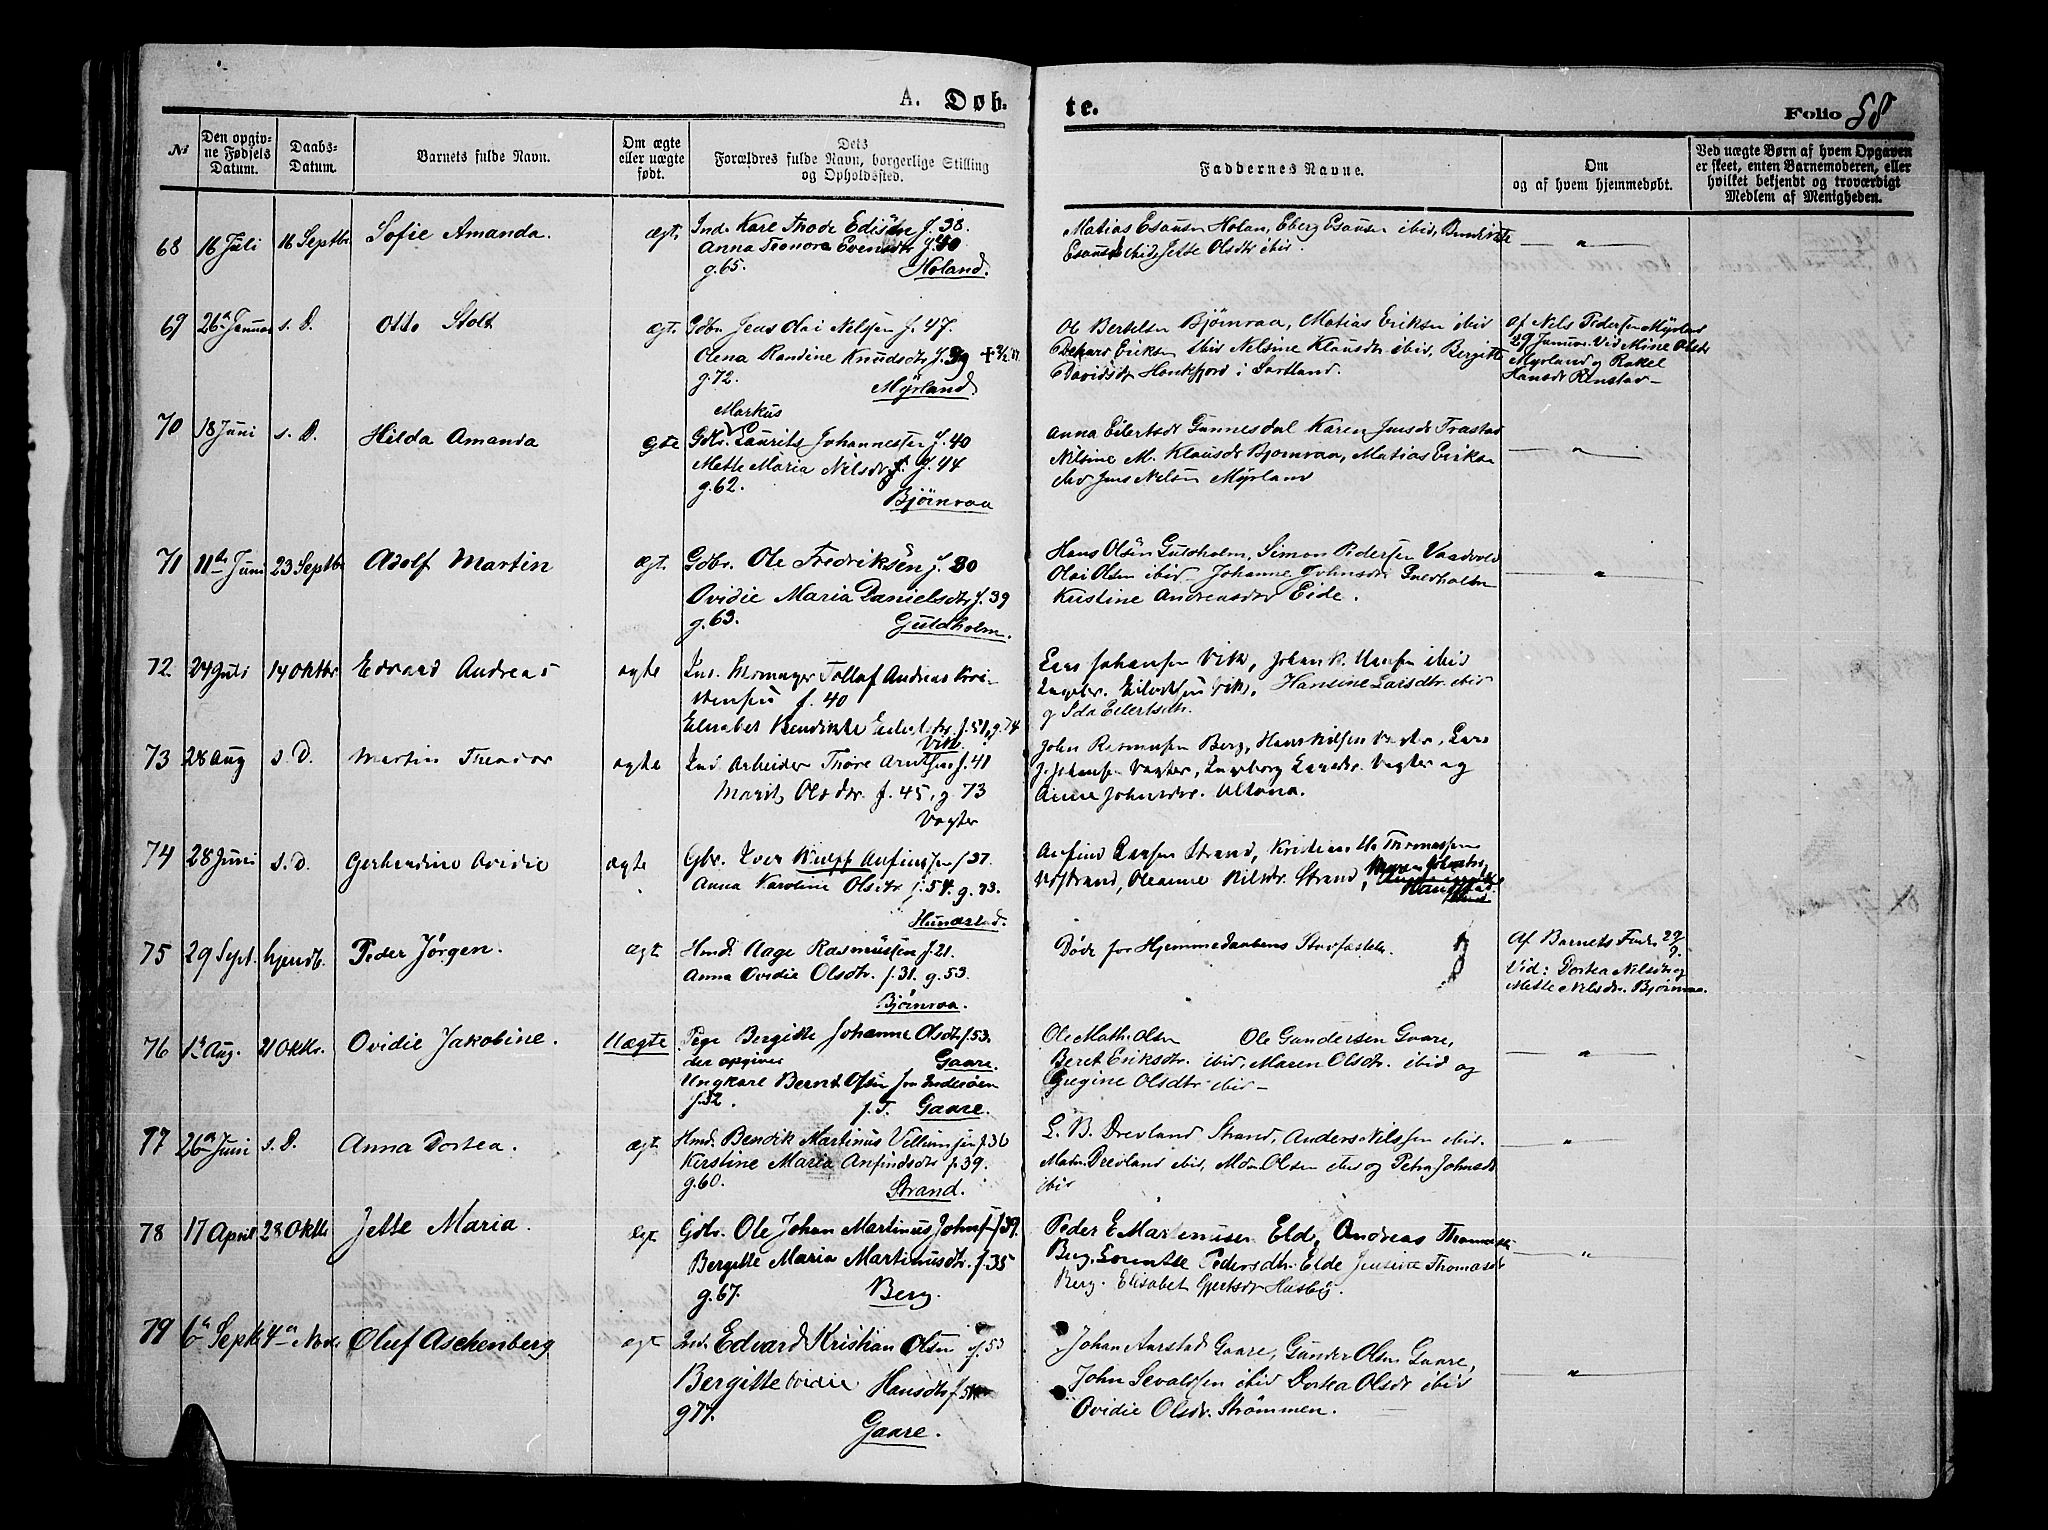 A. Døb-
te.
Folio 58
№
Den opgiv-
ne Fødsels
Datum.
Daabs-
Datum.
Barnets fulde Navn.
Om ægte
eller uægte
født.
Dets
Forældres fulde Navn, borgerlige Stilling
og Opholdssted.
Faddernes Navne.
Om
og af hvem hjemmedøbt.
Ved uægte Børn af hvem Opgaven
er skeet, enten Barnemoderen, eller
hvilket bekjendt og troværdigt
Medlem af Menigheden.
68 16 Juli 16 Septbr. Sofie Amanda. ægt.
Inds. Karl Thode Edisen f. 38.
Anna Leonora Evensdtr f. 40
g. 65. Holand.
Matias Esausen Holan, Eberg Esausen ibid,
Esausd ibid, Jette Olsdtr ibid.
— " —
69 26de Januar s. D. Otto Stolt ægt.
Gdbr. Jens Olai Nelsen f. 47.
Olena Randine Knudsdtr f. 39
g. 72. Myrland
Ol Bertelsen Bjørnraa, Matias Eriksen ibid
Eriksen ibid Nelsine Klausdtr ibid, Bergitte
Davidsdtr Honkfjord i Sortland.
af Nels Pedersen Myrland
29 Januar. Vid Mine Olsdtr
Myrland og Rakel
Hansdtr Renstad —
70 18 Juni s. D. Hilda Amanda ægte
Markus
Gdbr. Laurits Johannessen f. 40
Mette Maria Nilsdtr f. 44
g. 62. Bjørnraa
Anna Eilertsdr Gunnesdal Karen Jensdr Trastad
Nilsine M. Klausdr Bjornraa, Matias Erikse
ibid Jens Nelsen Myrland
— " —
71 11te Juni 23 Septbr Adolf Martin ægt.
Gdbr. Ole Fredriksen f. 30
Ovidie Maria Danielsdtr f. 39
g. 63. Guldholm.
Hans Olsen Guldholm, Simon Pedersen Vaadvold
Olai Olsen ibid Johanne Johnsdr Guldholm
Kristine Andreasdtr Eide.
— " —
72 24 Juli 14 Oktbr. Edvard Andreas ægte
Ins. Tollaf Andreas Kri-
stensen f. 40
Elisabet Bendikte f. 51, g. 74
Vik.
Lars Johansen Vik, Johan K. Hansen ibid
Eilertsen Vik, Hansine Larsdtr. ibid
og Ida Eilertsdtr.
73 28 Aug s. D. Martin Theodor ægte
Ind. Arbeider Thore Arntsen f. 41
Marit Olsdtr. f. 45, g. 73
Vogter
John Rasmusen Berg, Hans Nilsen Vogter, Lars
J. Johansen Vogter, Ingeborg Larsdtr. Vogter og
Anne Johnsdtr. Altona.
74 28 Juni s. D. Gerhardine Ovidie ægte
Gbr. Iver Wulff Anfinssen f 37.
Anna Karoline Olsdtr f. 54. g. 73.
Hunastad.
Anfind Larsen Strand, Kristian Thomassen
Strand, Oleanne Nilsdr. Strand,
75 29 Sept. hjemdb. Peder Jørgen. ægt
Hmd. Aage Rasmussen f. 21.
Anna Ovidie Olsdtr. f. 31. g. 53.
Bjørnraa.
Døde før Hjemmedaabens Stadfæstelse.
Af Barnets Fader 29/9.
Vid: Dortea Nilsdtr og
Mette Nilsdtr. Bjørnraa.
76 1ste Aug. 21 Oktbr. Ovidie Jakobine. Uægte
Pige Bergitte Johanne Olsdtr f. 53.
der opgiver Gaare.
Ungkarl Bernt Olsen fra Inderøen
f. 52. f. T. Gaare.
Ole Math. Olsen Ole Gundersen Gaare,
Beret Eriksdtr. ibid, Maren Olsdtr. ibid og
Gregine Olsdtr. ibid —
— " —
77 26de Juni s. D. Anna Dortea. ægt.
Hmd. Bendik Martinus Villumsen f. 36
Kerstine Maria Anfindsdtr f. 39.
g. 60. Strand.
L. B. Drevland Strand, Anders Nilssen ibid.
Matn. Drevland ibid, Olsen ibid og Petra Johnsdtr
ibid
"
78 17 April 28 Oktbr Jette Maria. ægt
Gdbr. Ole Johan Martinus Johnsen f 39.
Bergitte Maria Martinusdtr. f. 35
g. 67. Berg.
Peder E Martinusen Elde, Andreas Thomassen
Berg. Lorentse Pedersdtr. Elde Jensine Thomasdtr
Berg. Elisabet Gjertsdtr Husby.
— " —
79 6te Septbr 4de Novbr Oluf Aschenberg ægt
Ind. Edvard Kristian Olsen f. 53
Bergitte Ovidie Hansdtr f.
g 77. Gaare.
Johan Aarstad Gaare, Gunder Olsen Gaare,
John Sevaldsen ibid Dortea Olsdr ibid
Ovidie Olsdr. Strømmen.
"